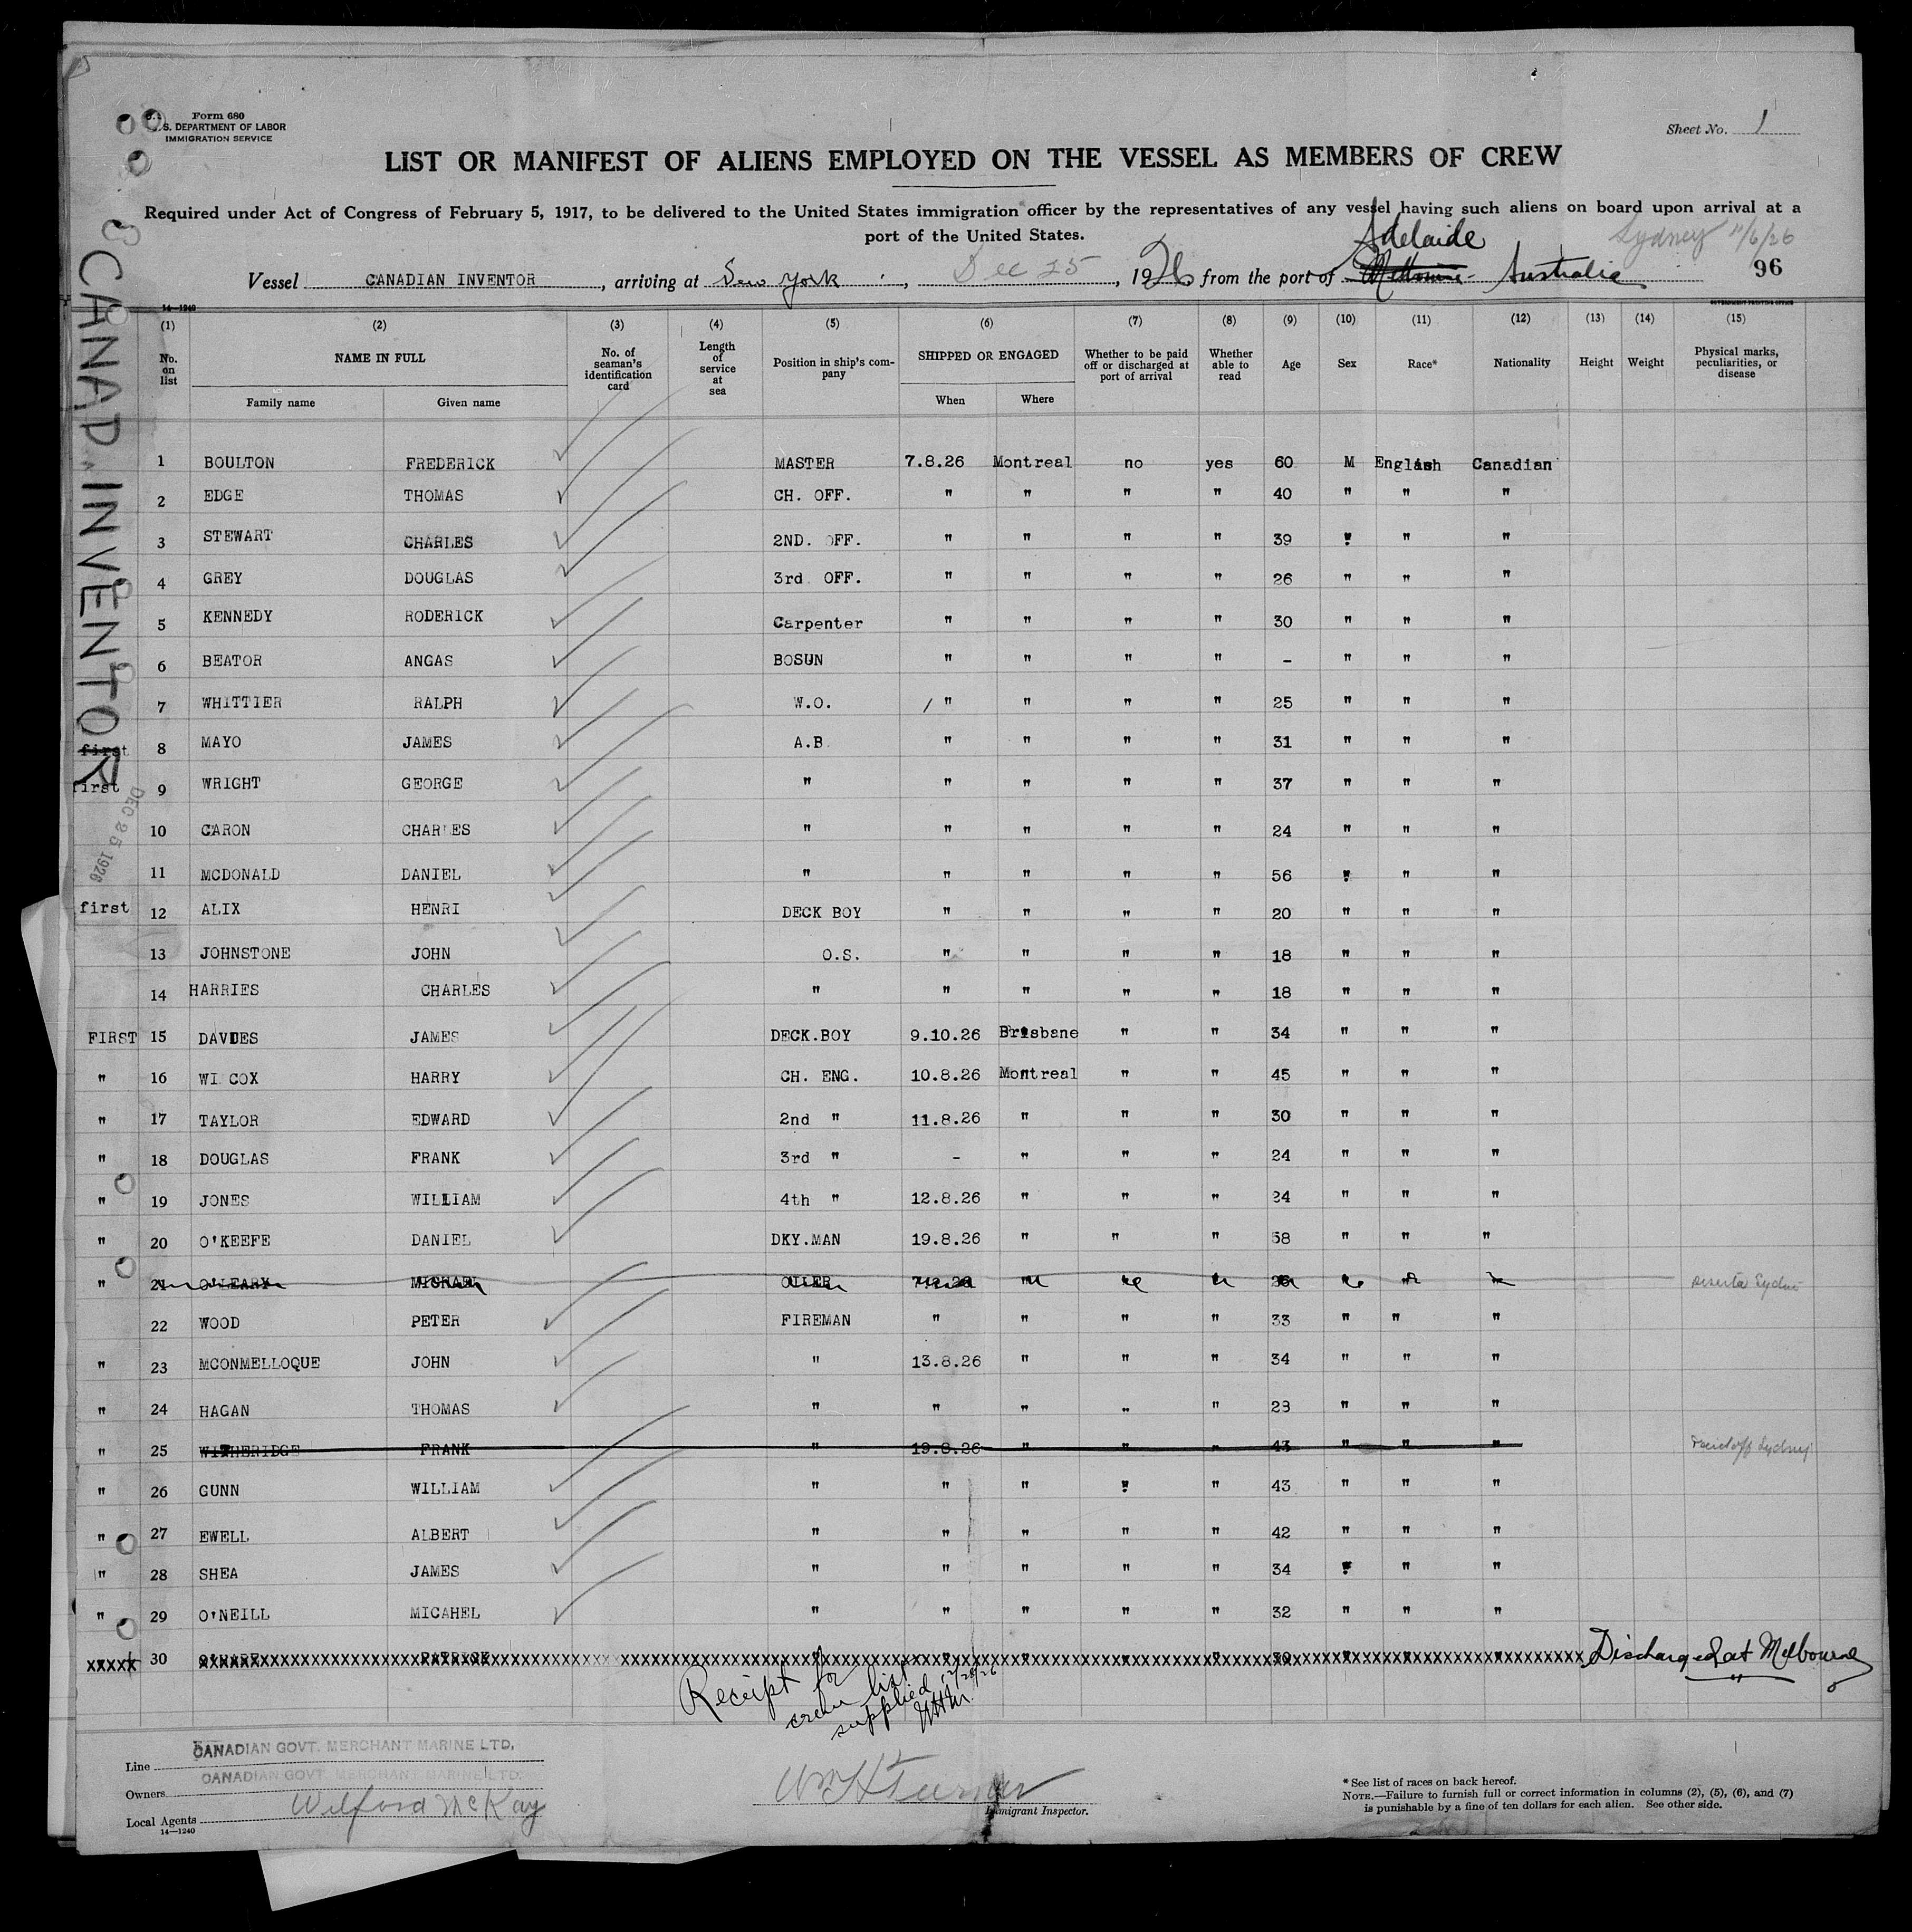 Form 680
U.S. DEPARTMENT OF LABOR
IMMIGRATION SERVICE
Sheet No. 1
LIST OR MANIFEST OF ALIENS EMPLOYED ON THE VESSEL AS MEMBERS OF CREW
Required under Act of Congress of February 5, 1917, to be delivered to the United States immigration officer by the representatives of any vessel having such aliens on board upon arrival at a
port of the United States.
Adelaide
Sydney 11/6/26
Vessel CANADIAN INVENTOR, arriving at New York, Dec 25, 1926 from the port of Melbourne Australia
96
14—1240
GOVERNMENT PRINTING OFFICE
CANAD. INVENTOR
(1) (2) (3) (4) (5) (6) (7) (8) (9) (10) (11) (12) (13) (14) (15)
No. on list
NAME IN FULL
Family name
Given name
No. of seaman's identification card
Length of service at sea
Position in ship's company
SHIPPED OR ENGAGED
When
Where
Whether to be paid off or discharged at port of arrival
Whether able to read
Age
Sex
Race*
Nationality
Height
Weight
Physical marks, peculiarities, or disease
1 BOULTON FREDERICK MASTER 7.8.26 Montreal no yes 60 M English Canadian
2 EDGE THOMAS CH. OFF. " " " " 40 " " "
3 STEWART CHARLES 2ND. OFF. " " " " 39 " " "
4 GREY DOUGLAS 3rd OFF. " " " " 26 " " "
5 KENNEDY RODERICK Carpenter " " " " 30 " " "
6 BEATOR ANGAS BOSUN " " " " - " " "
7 WHITTIER RALPH W.O. " " " " 25 " " "
first 8 MAYO JAMES A.B. " " " " 31 " " "
first 9 WRIGHT GEORGE " " " " " 37 " " "
DEC 25 1926
10 CARON CHARLES " " " " " 24 " " "
11 MCDONALD DANIEL " " " " " 56 " " "
first 12 ALIX HENRI DECK BOY " " " " 20 " " "
13 JOHNSTONE JOHN O.S. " " " " 18 " " "
14 HARRIES CHARLES " " " " " 18 " " "
FIRST 15 DAVIES JAMES DECK.BOY 9.10.26 Brisbane " " 34 " " "
" 16 WI COX HARRY CH. ENG. 10.8.26 Montreal " " 45 " " "
" 17 TAYLOR EDWARD 2nd " 11.8.26 " " " 30 " " "
" 18 DOUGLAS FRANK 3rd " - " " " 24 " " "
" 19 JONES WILLIAM 4th " 12.8.26 " " " 24 " " "
" 20 O'KEEFE DANIEL DKY.MAN 19.8.26 " " " 58 " " "
" 21 O'LEARY MICHAEL OILER " " " " " "
22 WOOD PETER FIREMAN " " " " 33 " " "
" 23 MCONMELLOQUE JOHN " 13.8.26 " " " 34 " " "
" 24 HAGAN THOMAS " " " " " 23 " " "
" 25 WITHERIDGE FRANK " 19.8.26 " " " 43 " " " Paid off Sydney
" 26 GUNN WILLIAM " " " " " 43 " " "
" 27 EWELL ALBERT " " " " " 42 " " "
" 28 SHEA JAMES " " " " " 34 " " "
" 29 O'NEILL MICAHEL " " " " " 32 " " "
xxxx 30 PATRICK Discharged at Melbourne
"
Receipt for
crew list
supplied 12/28/26
CANADIAN GOVT. MERCHANT MARINE LTD.
Line
CANADIAN GOVT. MERCHANT MARINE LTD.
Owners
Wilford McKay
Local Agents
14—1240
Wm H Turner
Immigrant Inspector.
* See list of races on back hereof.
NOTE.—Failure to furnish full or correct information in columns (2), (5), (6), and (7)
is punishable by a fine of ten dollars for each alien. See other side.